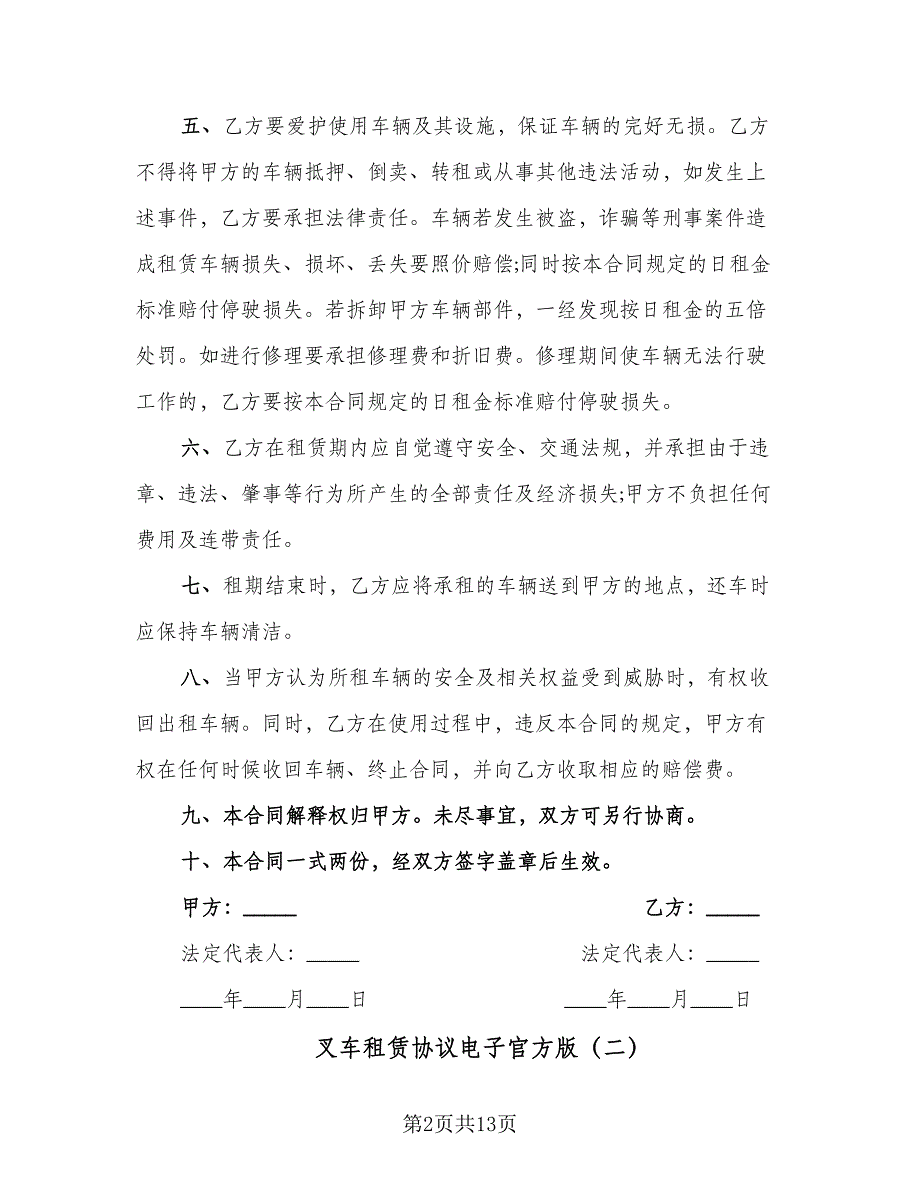 五、乙方要爱护使用车辆及其设施，保证车辆的完好无损。乙方
不得将甲方的车辆抵押、倒卖、转租或从事其他违法活动，如发生上
述事件，乙方要承担法律责任。车辆若发生被盗，诈骗等刑事案件造
成租赁车辆损失、损坏、丢失要照价赔偿;同时按本合同规定的日租金
标准赔付停驶损失。若拆卸甲方车辆部件，一经发现按日租金的五倍
处罚。如进行修理要承担修理费和折旧费。修理期间使车辆无法行驶
工作的，乙方要按本合同规定的日租金标准赔付停驶损失。
六、乙方在租赁期内应自觉遵守安全、交通法规，并承担由于违
章、违法、肇事等行为所产生的全部责任及经济损失;甲方不负担任何
费用及连带责任。
七、租期结束时，乙方应将承租的车辆送到甲方的地点，还车时
应保持车辆清洁。
八、当甲方认为所租车辆的安全及相关权益受到威胁时，有权收
回出租车辆。同时，乙方在使用过程中，违反本合同的规定，甲方有
权在任何时候收回车辆、终止合同，并向乙方收取相应的赔偿费。
九、本合同解释权归甲方。未尽事宜，双方可另行协商。
十、本合同一式两份，经双方签字盖章后生效。
甲方：_____ 乙方：_____
法定代表人：_____ 法定代表人：_____
____年____月____日 ____年____月____日
叉车租赁协议电子官方版（二）
第2页共13页